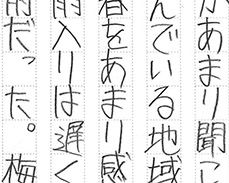 があまり聞こ
んでいる地域
春をあまり感
雨入りは遅く
雨だった。梅